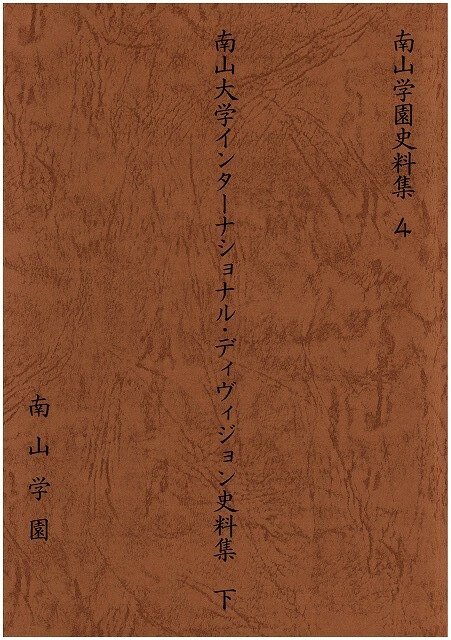 南山学園史料集 4
南山大学インターナショナル・ディヴィジョン史料集 下
南山学園